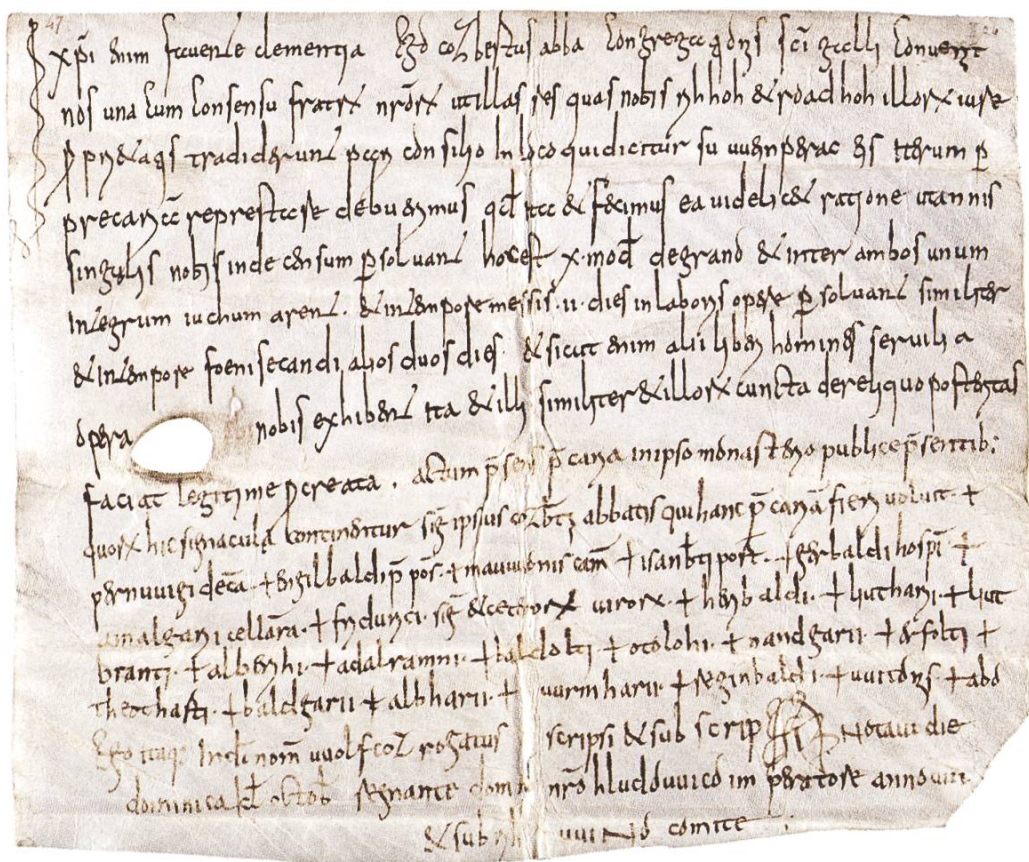 xpi enim favente clementia Ego cozbertus abba congregationis sci galli convenit
nos una cum consensu fratrum nrorum ut illas res quas nobis hohi & roadhoh illorum iure
tradiderunt pccn consilio In loco qui dicitur suuuenperac eis iterum p
precariam represtare deberemus qd ita & fecimus ea videlic& ratione ut annis
singulis nobis inde censum psolvant hoc est x mod de grano & inter ambos unum
Integrum iuchum arent & in tempore messis ii dies in laboris opere psolvant similiter
& In tempore foeni secandi alios duos dies & sicut enim alii liberi homines servilia
opera nobis exhibent ita & illi similiter & illorum cuncta de reliquo posteritas
faciat legitime pcreata. actum in ipso monasterio publice psentib;
quorum hic signacula continentur sig ipsius cozbti abbatis qui hanc pcariam fieri voluit +
pernuuigi deca + engilbaldi ppos + mauuonis cam + isanbti port + gerbaldi hospi +
amalgarii cellara + sig & ceterorum virorum + heribaldi + liuthari + liut
branti + albrihi + adalramni + baldolti + otolohi + nandgarii + +
theothafti + baldgarii + albharii + vurmharii + reginbaldi + vuitonis + abo
Ego itaq Indi nom vuolfcoz rogatus scripsi & subscripsi Notavi die
dominica kl octob regnante domno nro hludouuico imperatore anno viii
& sub comite